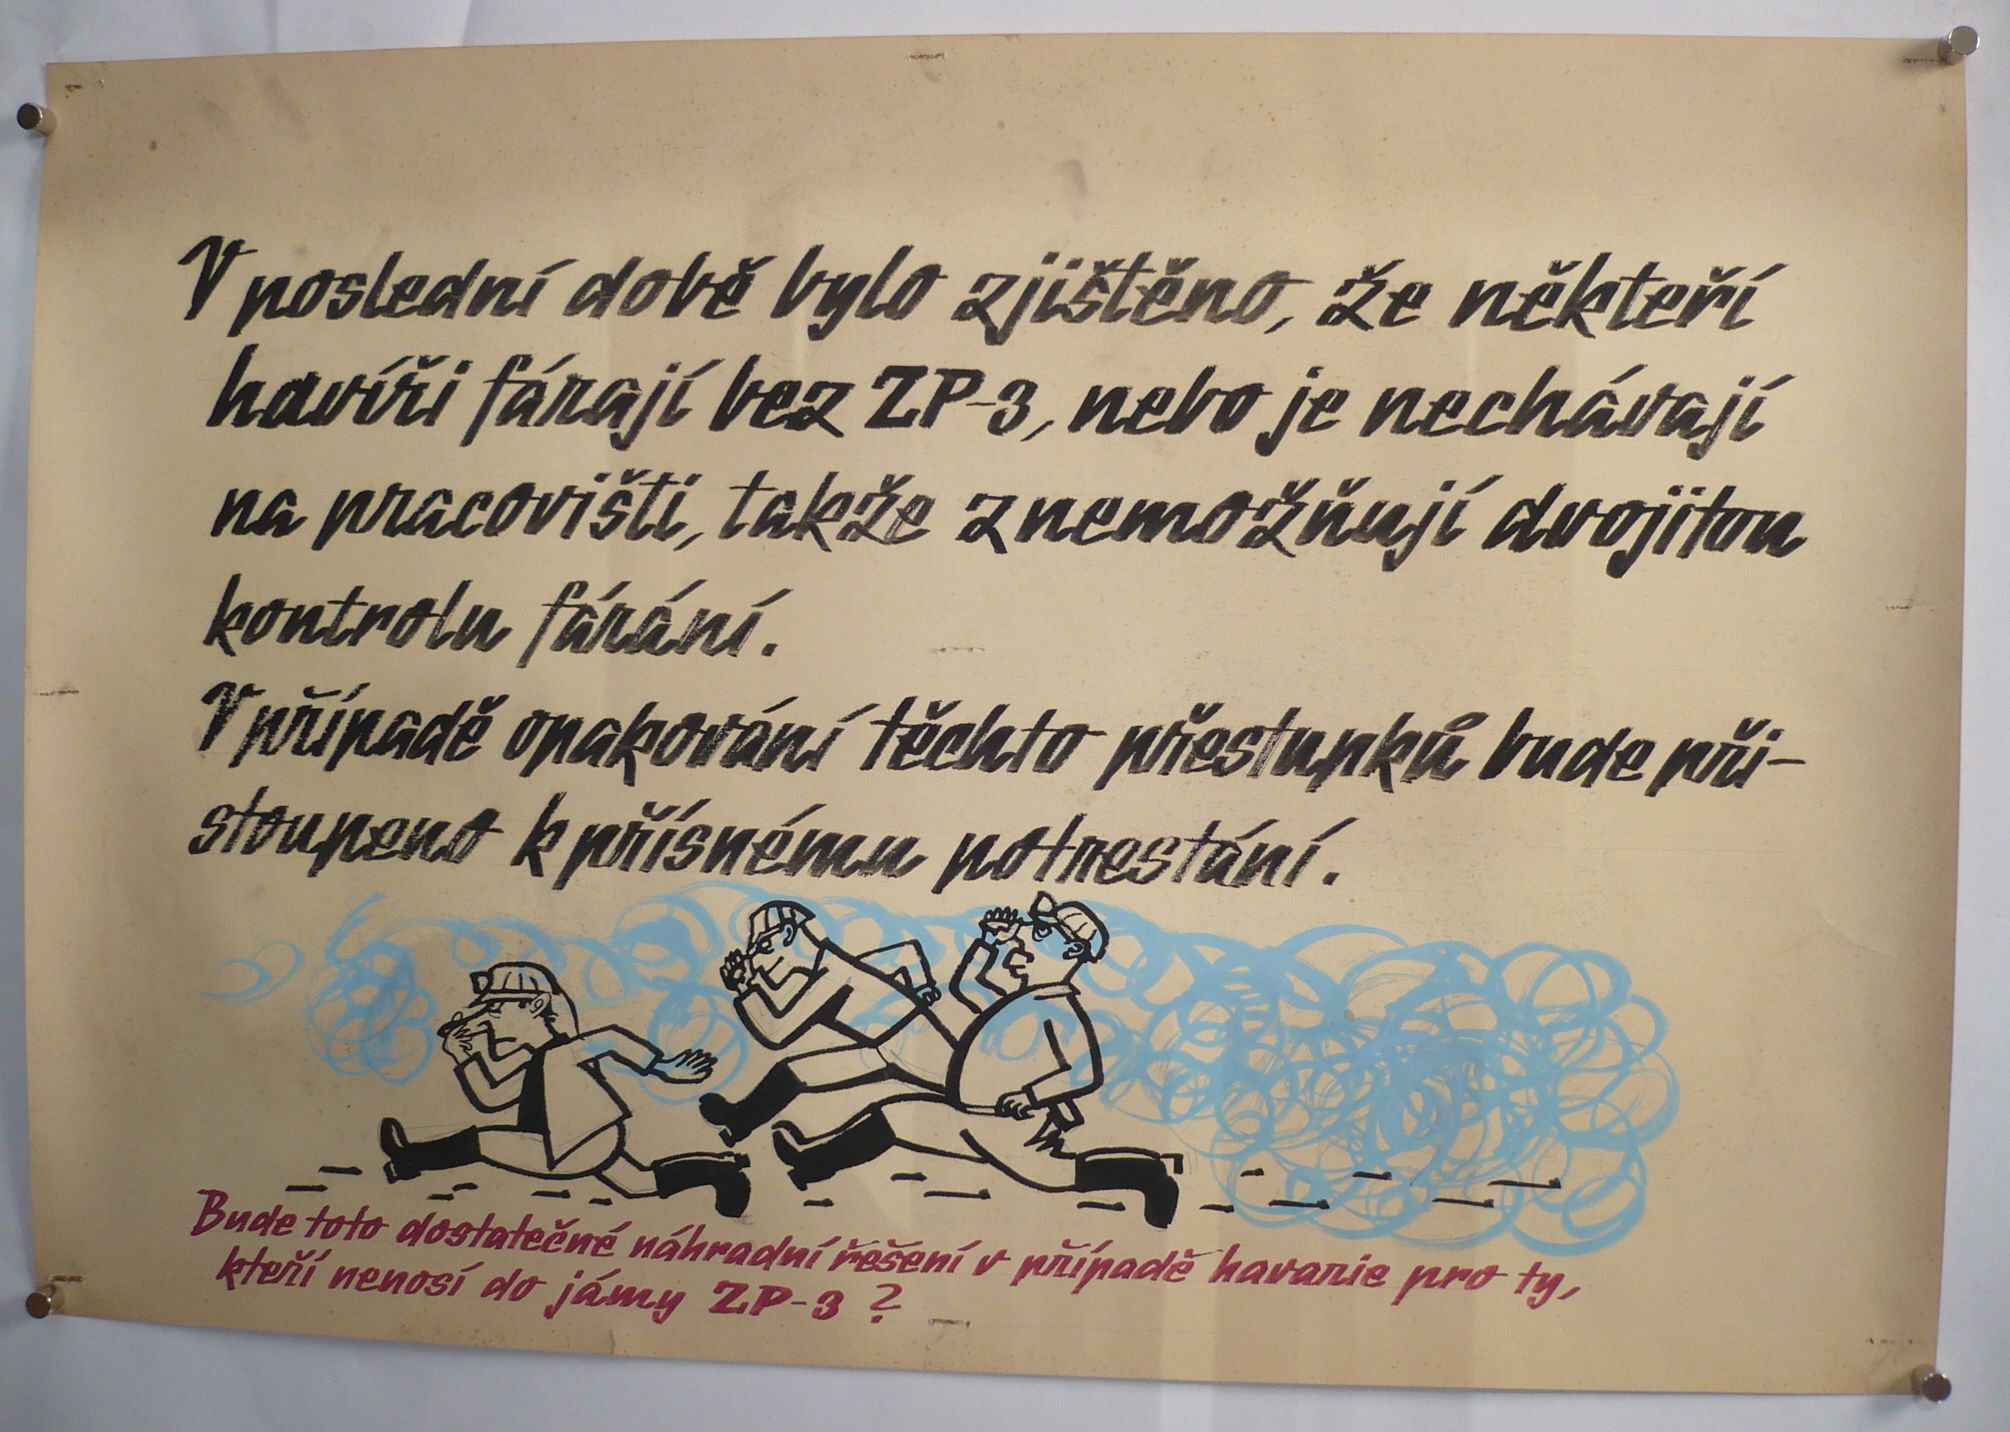 V poslední době bylo zjištěno, že někteří
havíři fárají bez ZP-3, nebo je nechávají
na pracovišti, takže znemožňují dvojitou
kontrolu fárání.
V případě opakování těchto přestupků bude při-
stoupeno k přísnému potrestání.
Bude toto dostatečné náhradní řešení v případě havarie pro ty,
kteří nenosí do jámy ZP-3 ?